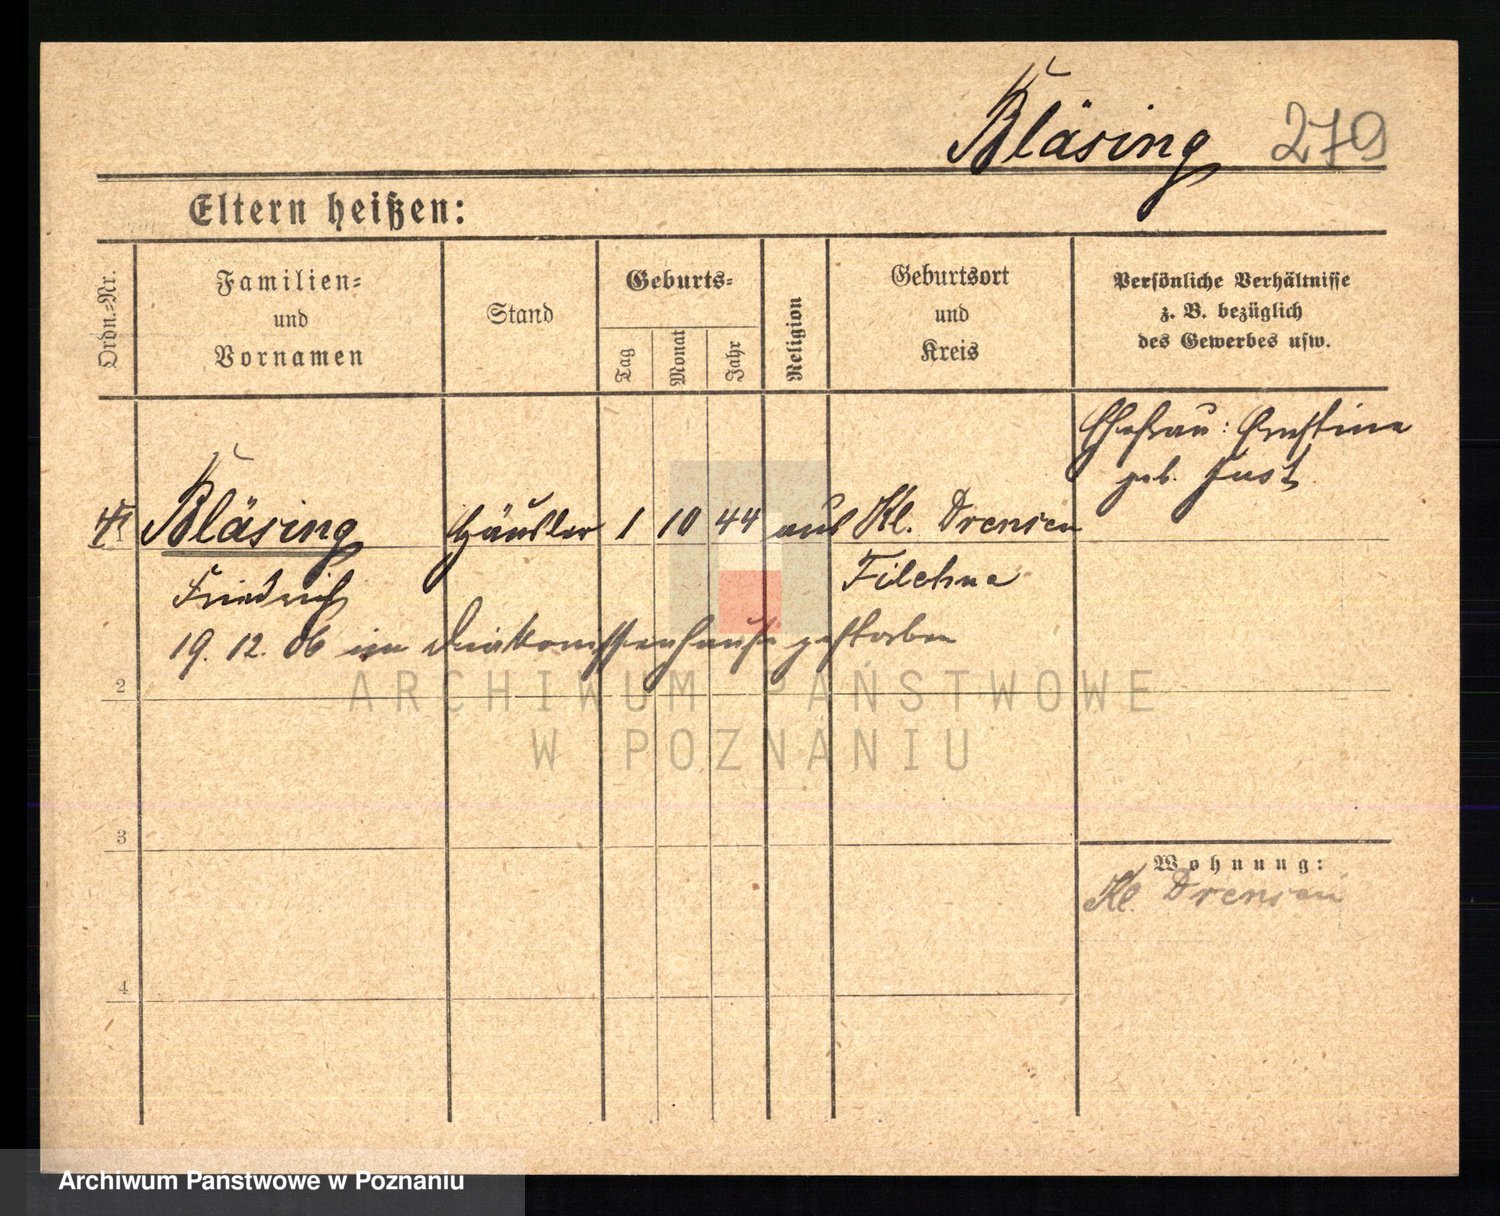 Bläsing 279
Eltern heißen:
Ordn.-Nr.
Familien-
und
Vornamen
Stand
Geburts-
Tag
Monat
Jahr
Religion
Geburtsort
und
Kreis
Persönliche Verhältnisse
z. B. bezüglich
des Gewerbes usw.
Ehefrau: Ernstine
geb. Just
1 Bläsing Häusler 1 10 44 aus Kl. Drensen
Friedrich Filehne
19. 12. 06 im Diakonissenhause gestorben
2
3
4
Wohnung:
Kl. Drensen
ARCHIWUM PAŃSTWOWE
W POZNANIU
Archiwum Państwowe w Poznaniu